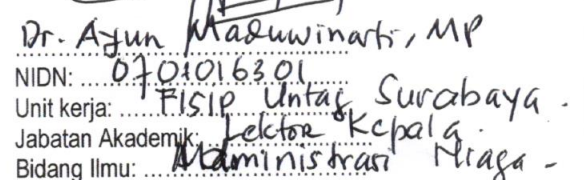 Dr. Ayun Maduwinarti, MP
NIDN: 0701016301
Unit kerja: FISIP Untag Surabaya.
Jabatan Akademik: Lektor Kepala.
Bidang Ilmu: Administrasi Niaga -